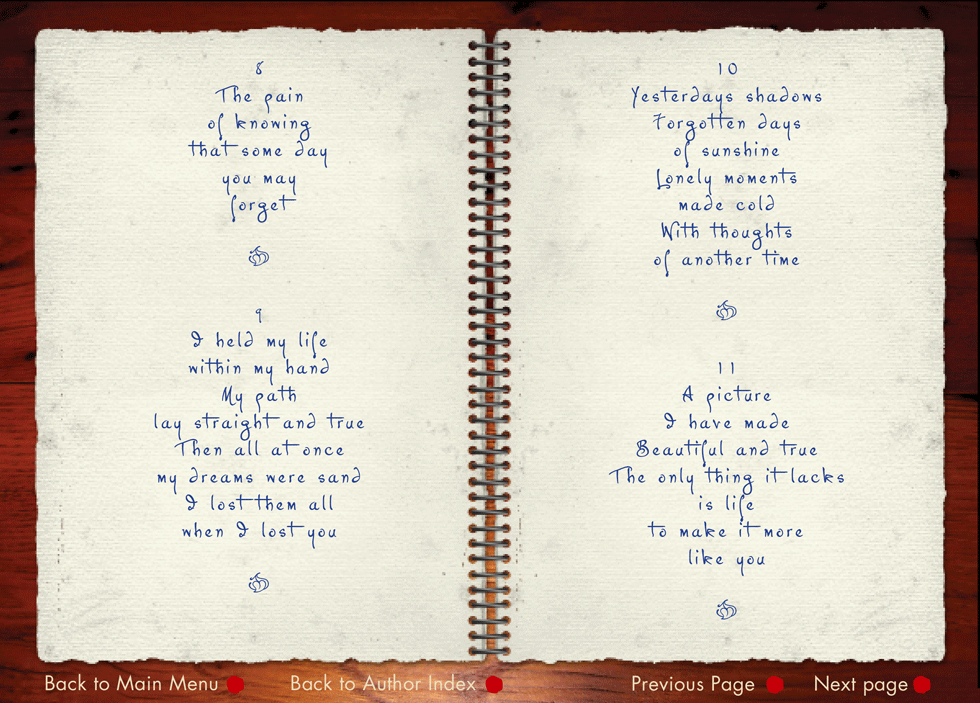 8
The pain
of knowing
that some day
you may
forget
9
I held my life
within my hand
My path
lay straight and true
Then all at once
my dreams were sand
I lost them all
when I lost you
10
Yesterdays shadows
Forgotten days
of sunshine
Lonely moments
made cold
With thoughts
of another time
11
A picture
I have made
Beautiful and true
The only thing it lacks
is life
to make it more
like you
Back to Main Menu
Back to Author Index
Previous Page
Next page